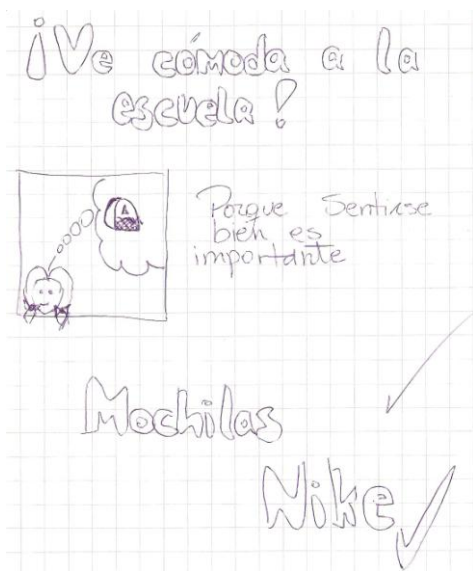 ¡Ve cómoda a la
escuela!
Porque Sentirse
bien es
importante
Mochilas
Nike